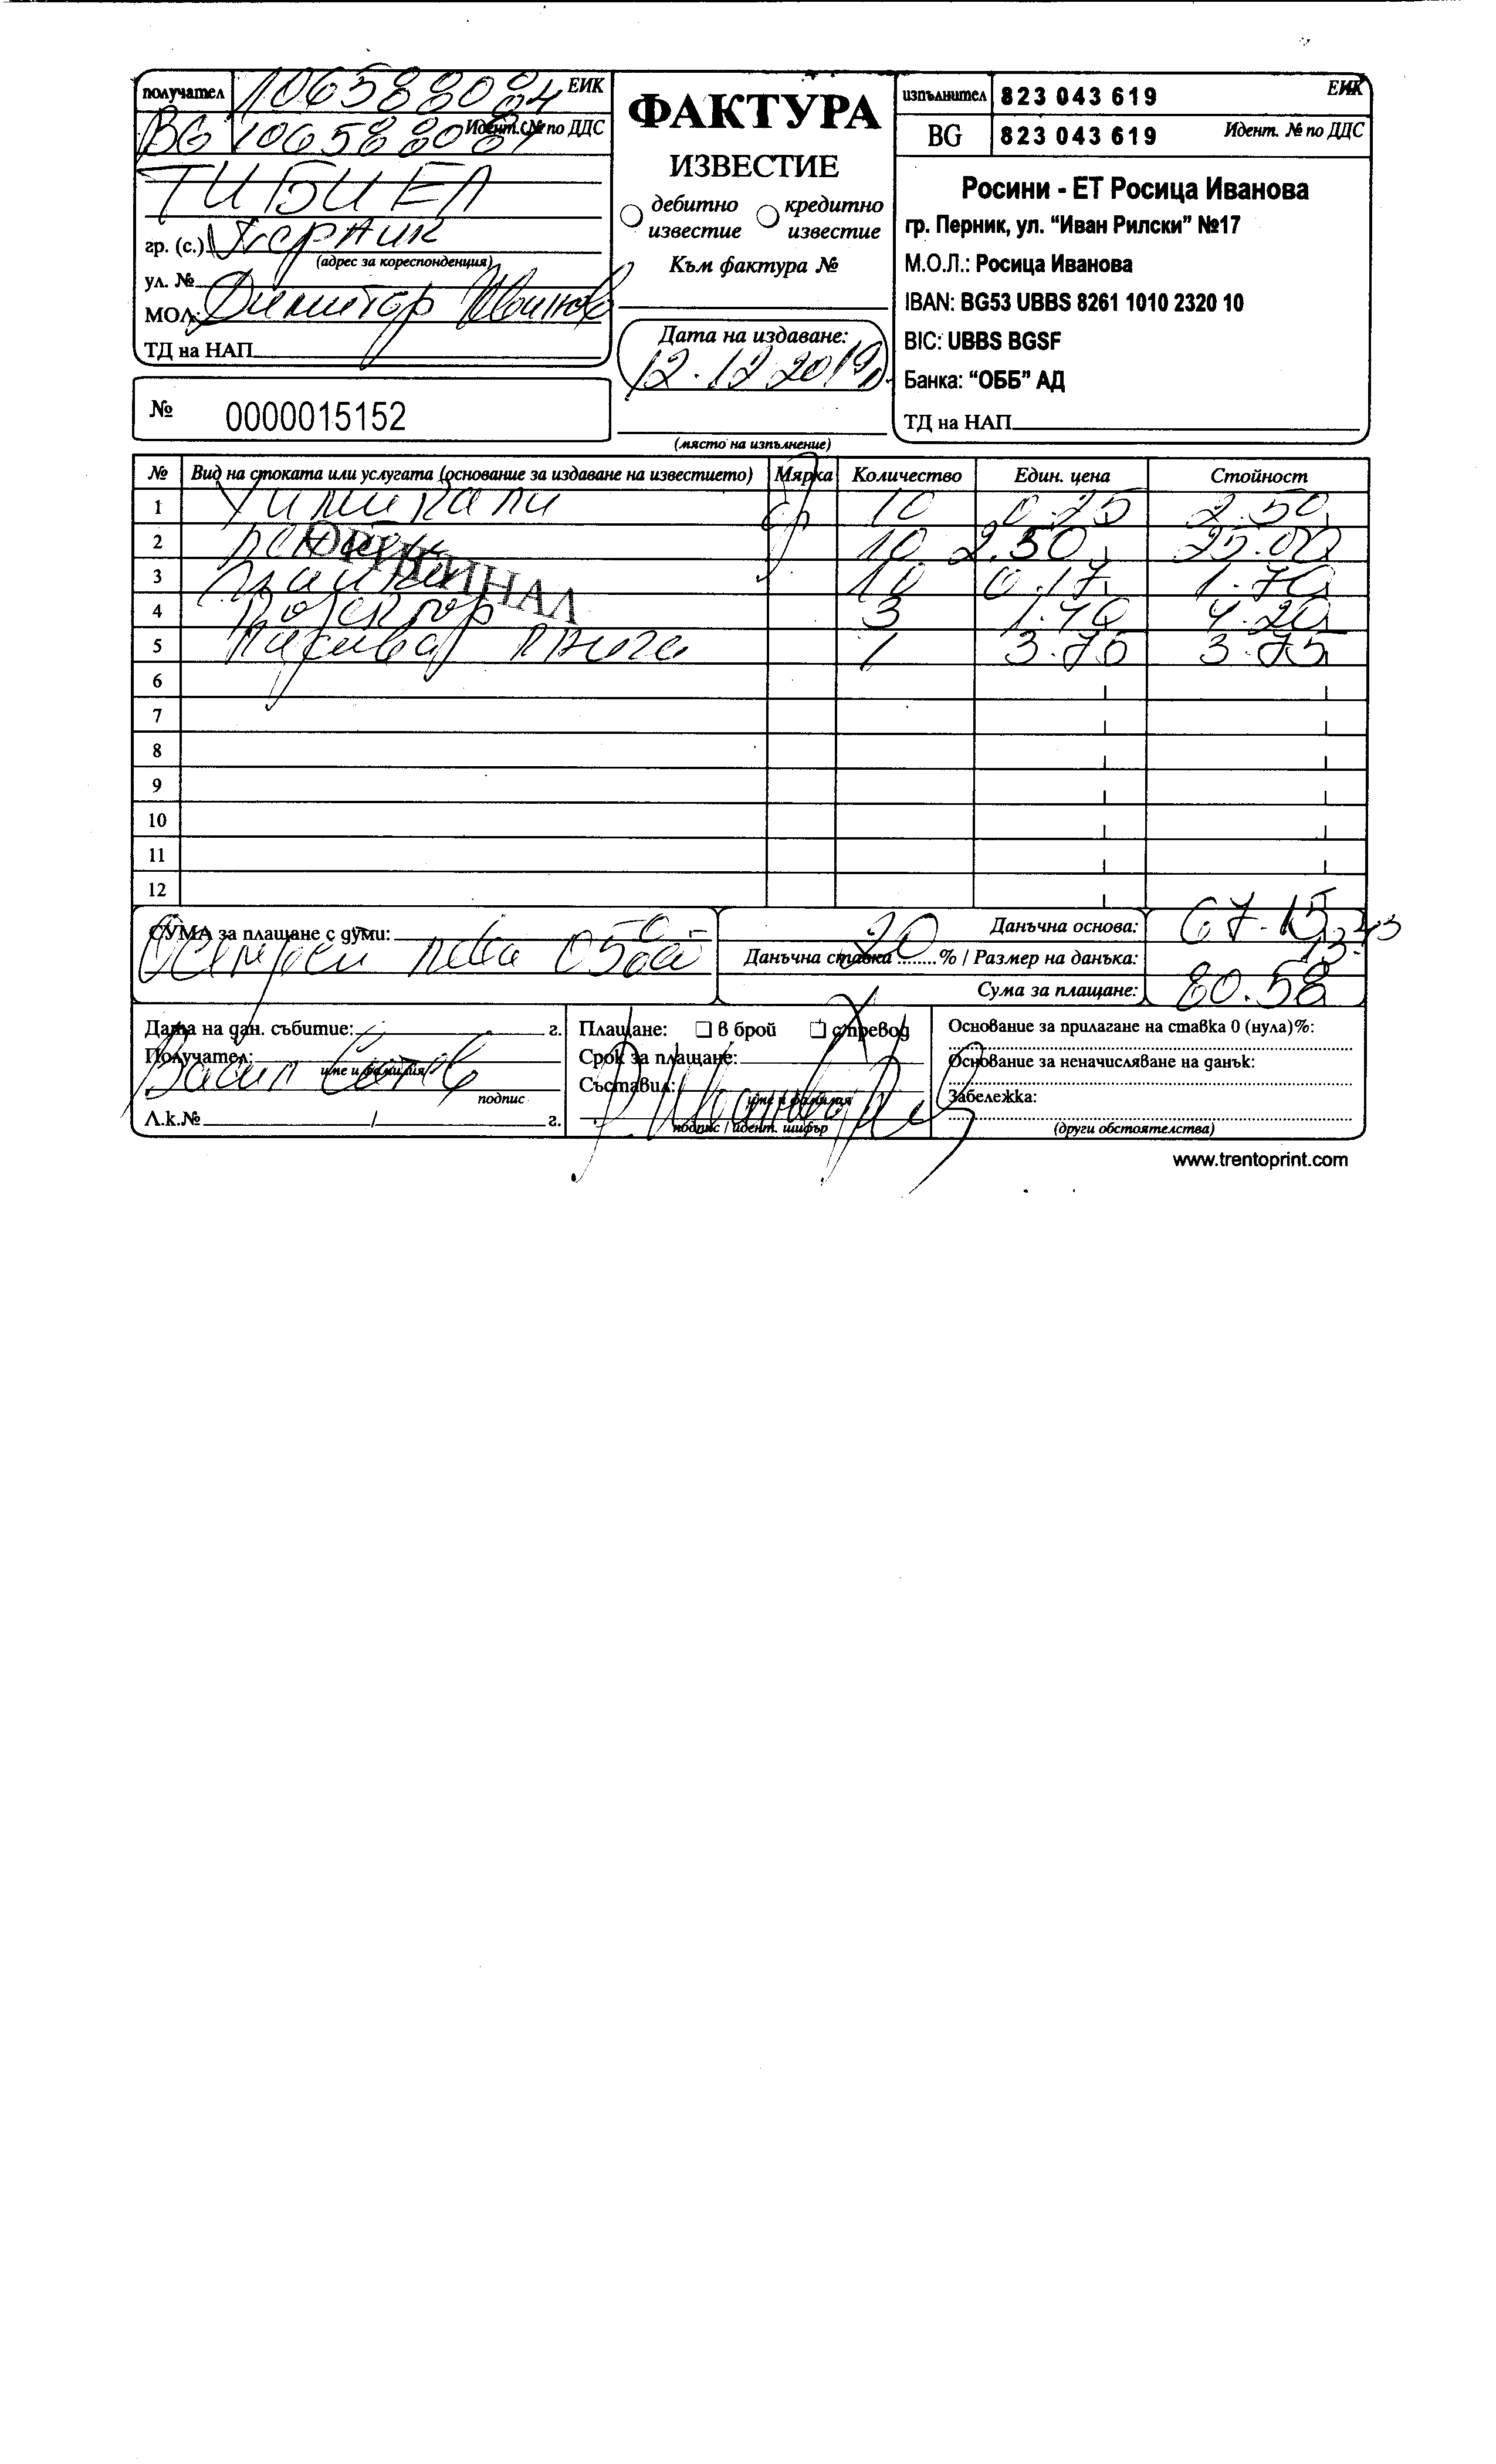 получател 106588084 ЕИК
BG 106588084 Идент. № по ДДС
ТИБИЕЛ
гр. (с.) Перник
(адрес за кореспонденция)
ул. №
МОЛ: Димитър
ТД на НАП
№ 0000015152
ФАКТУРА
ИЗВЕСТИЕ
дебитно известие кредитно известие
Към фактура №
Дата на издаване:
12.12.2019г.
(място на изпълнение)
изпълнител 823 043 619 ЕИК
BG 823 043 619 Идент. № по ДДС
Росини - ЕТ Росица Иванова
гр. Перник, ул. “Иван Рилски” №17
М.О.Л.: Росица Иванова
IBAN: BG53 UBBS 8261 1010 2320 10
BIC: UBBS BGSF
Банка: “ОББ” АД
ТД на НАП
№ Вид на стоката или услугата (основание за издаване на известието) Мярка Количество Един. цена Стойност
1 Химикали бр 10 0.25 2.50
2 10 2.50 25.00
ОРИГИНАЛ
3 10 0.17 1.70
4 3 1.40 4.20
5 книга 1 3.75 3.75
6
7
8
9
10
11
12
СУМА за плащане с думи:
Осемдесет лева 058
Данъчна основа: 67.15
Данъчна ставка 20 % / Размер на данъка: 13.43
Сума за плащане: 80.58
Дата на дан. събитие: г.
Получател:
Васил
име и фамилия
подпис
Л.к.№ / г.
Плащане: в брой с превод
Срок за плащане:
Съставил: Р. Иванова
име и фамилия
подпис / идент. шифър
Основание за прилагане на ставка 0 (нула)%:
Основание за неначисляване на данък:
Забележка:
(други обстоятелства)
www.trentoprint.com